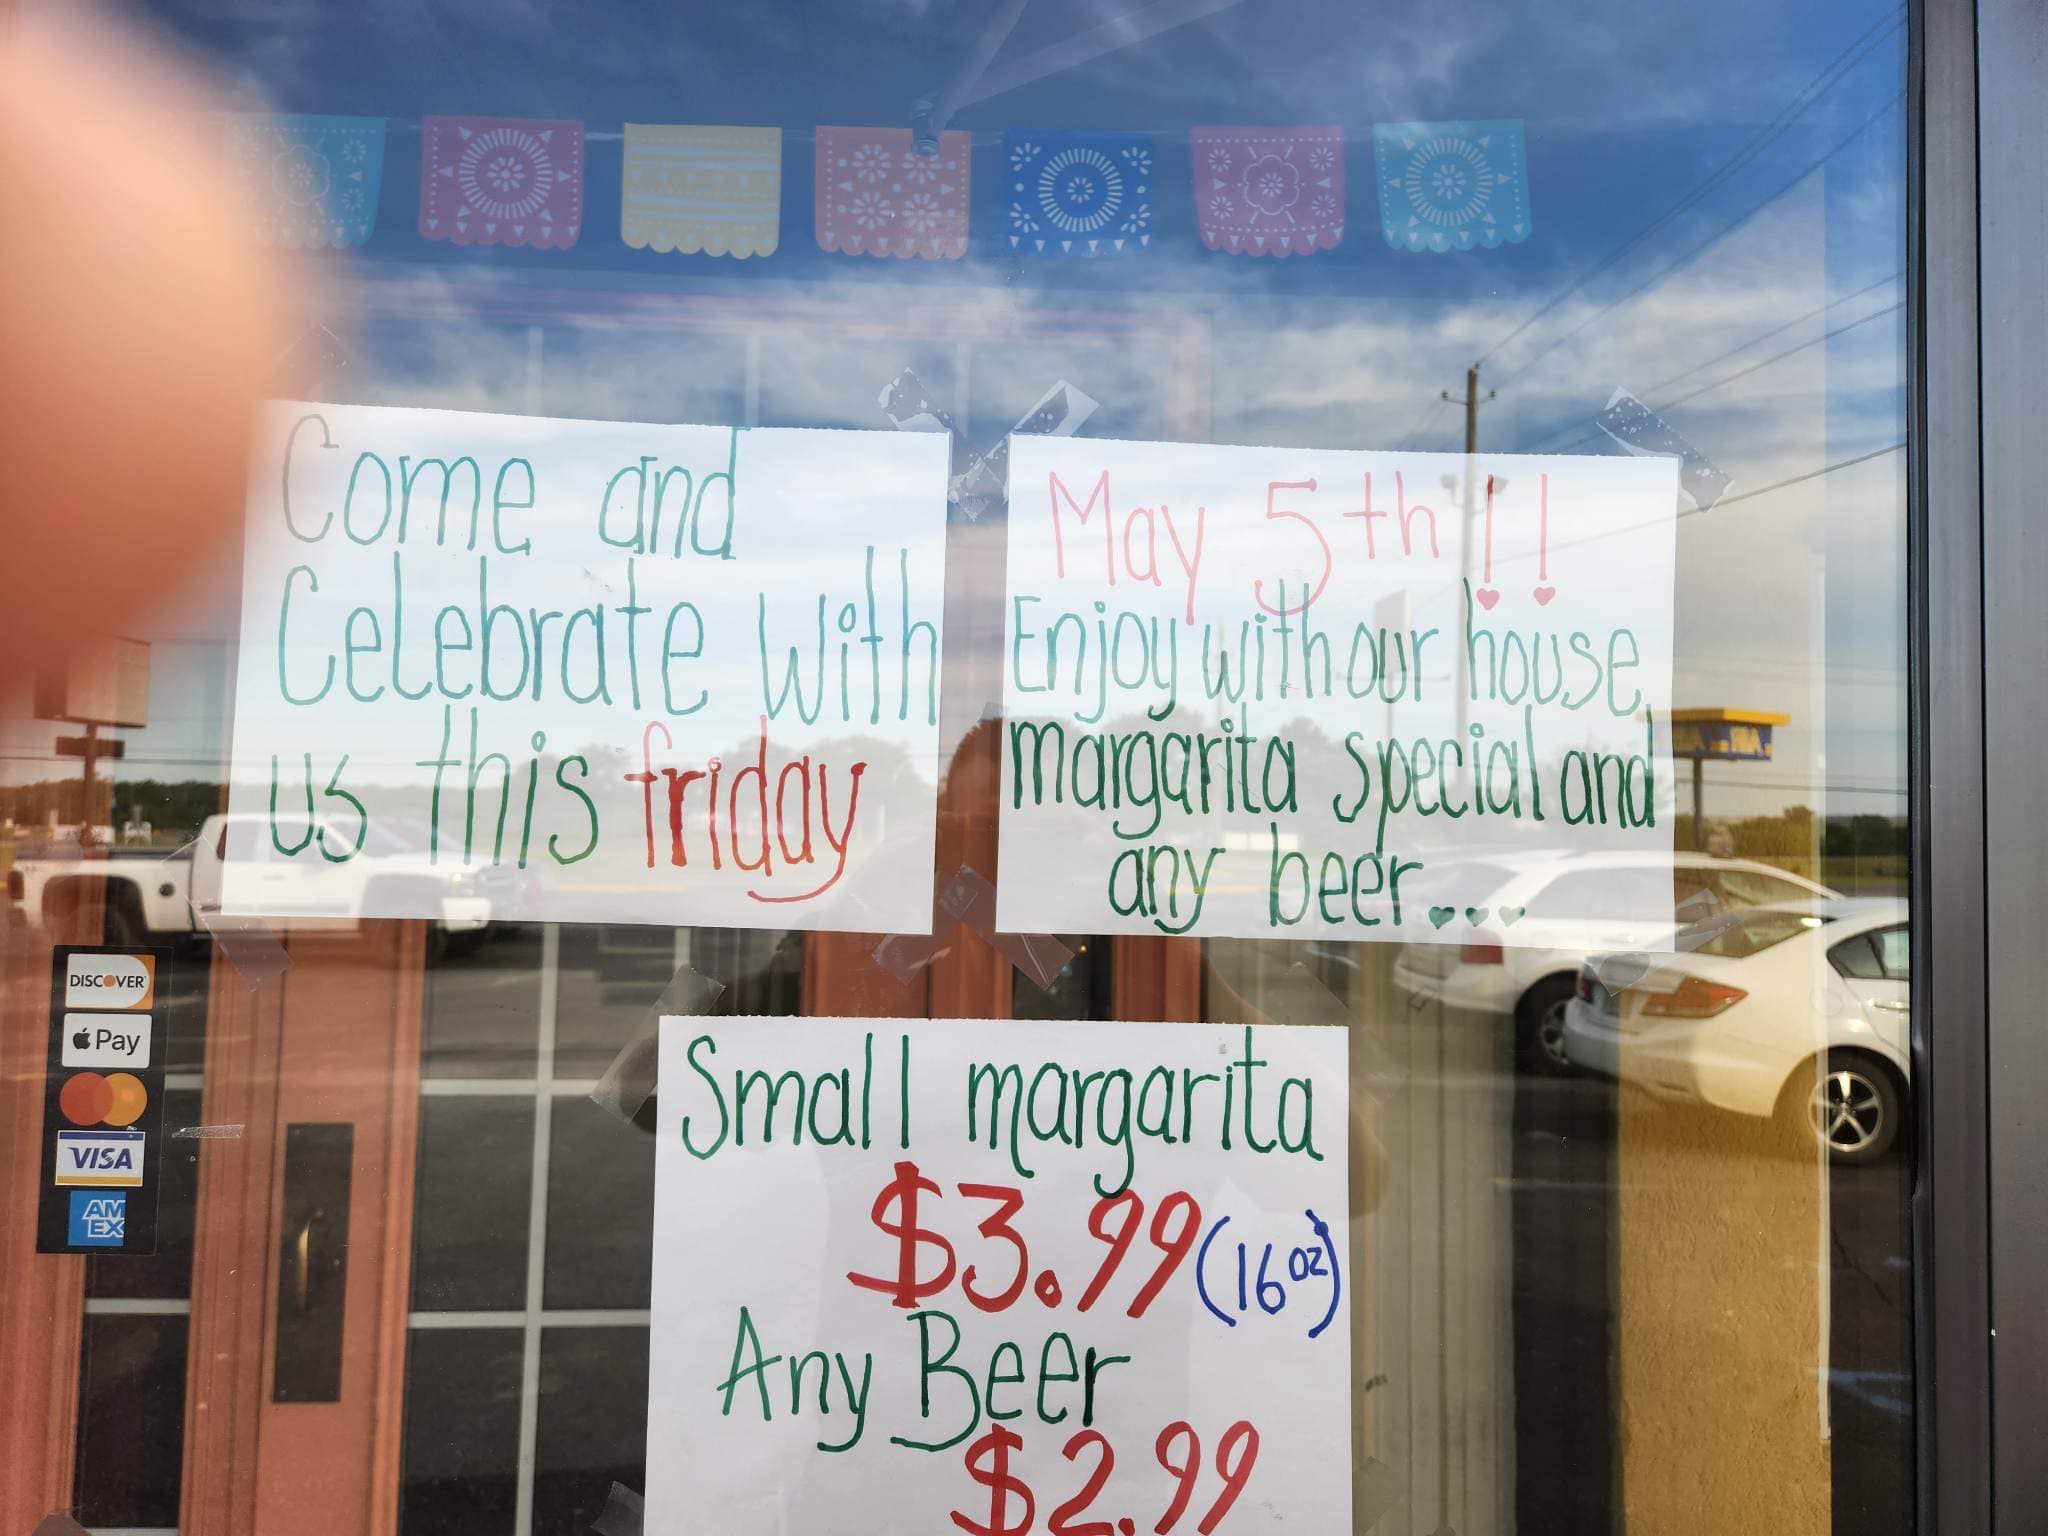 Come and
Celebrate with
us this friday
May 5th!!
Enjoy with our house
margarita special and
any beer...
Small margarita
$3.99 (16 oz)
Any Beer
$2.99
DISCOVER
Pay
VISA
AM
EX